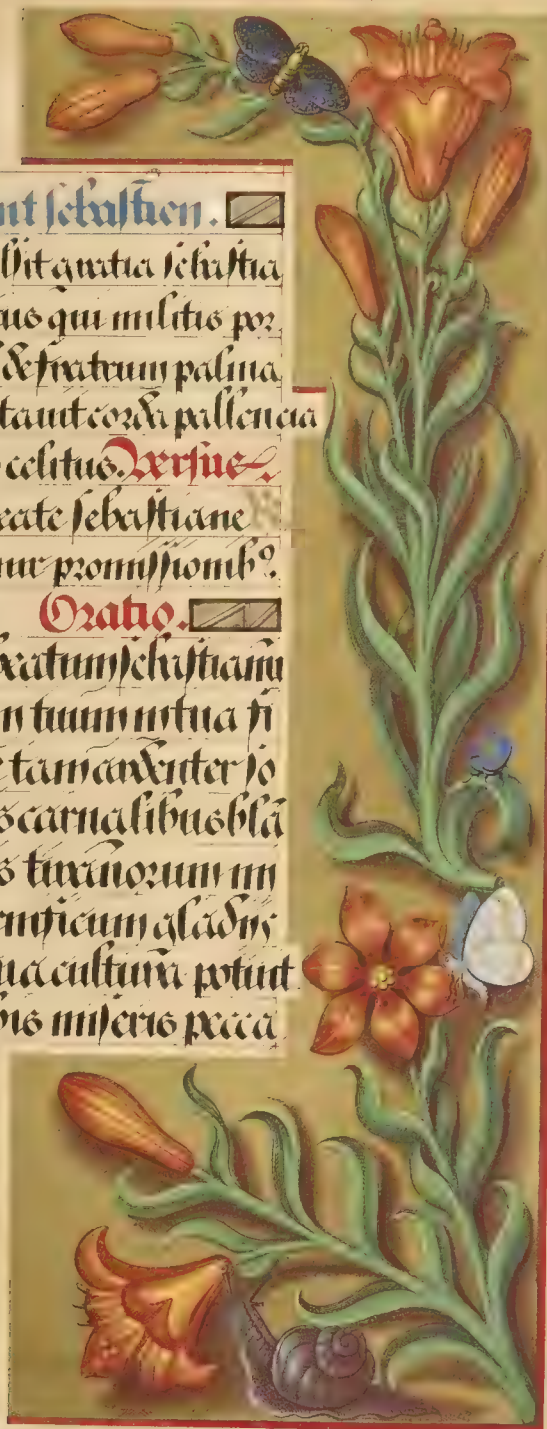 nt sebastien.
sit gratia sebastia
us qui militis por
de fratrum palma
tauit corda pallencia
celitus. Versus.
eate sebastiane
ur promissionib⁹.
Oratio.
beatum sebastianū
m tuum in tua fi
tam ardenter so
s carnalibus blā
s tirannorum mi
gladiis
ua cultura potuit
bis miseris pecca